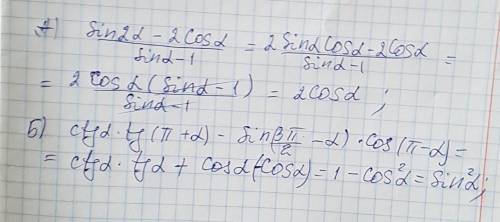 А) (sin2α - 2cosα)/(sinα-1) = (2sinαcosα-2cosα)/(sinα-1) =
= (2cosα(sinα-1))/(sinα-1) = 2cosα;
Б) ctgα·tg(π+α) - sin(3π/2 - α)·cos(π-α) =
= ctgα·tgα + cosα(-cosα) = 1 - cos²α = sin²α;